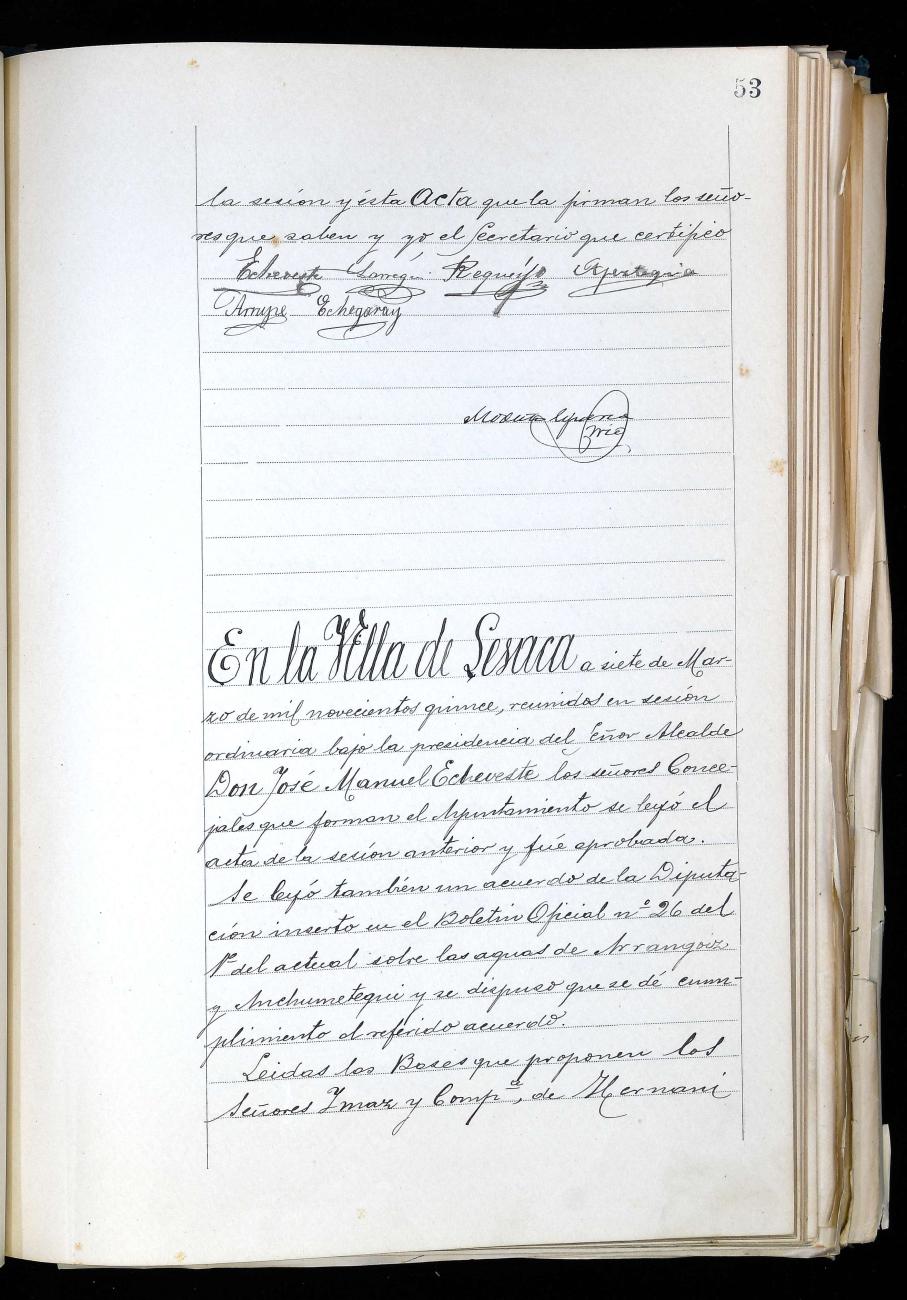 53
la sesión y ésta Acta que la firman los seño-
res que saben y yo el Secretario que certifico
Echeveste Larregui Requejo Apestegia
Arrupe Echegaray
En la Villa de Lesaca a siete de Mar-
zo de mil novecientos quince, reunidos en sesión
ordinaria bajo la presidencia del Señor Alcalde
Don José Manuel Echeveste los señores Conce-
jales que forman el Ayuntamiento se leyó el
acta de la sesión anterior y fué aprobada.
Se leyó también un acuerdo de la Diputa-
ción inserto en el Boletin Oficial nº 26 del
1º del actual sobre las aguas de Arrangoiz
y Anchumetegui y se dispuso que se dé cum-
plimiento al referido acuerdo.
Leidas las Bases que proponen los
Señores Imaz y Compª, de Hernani